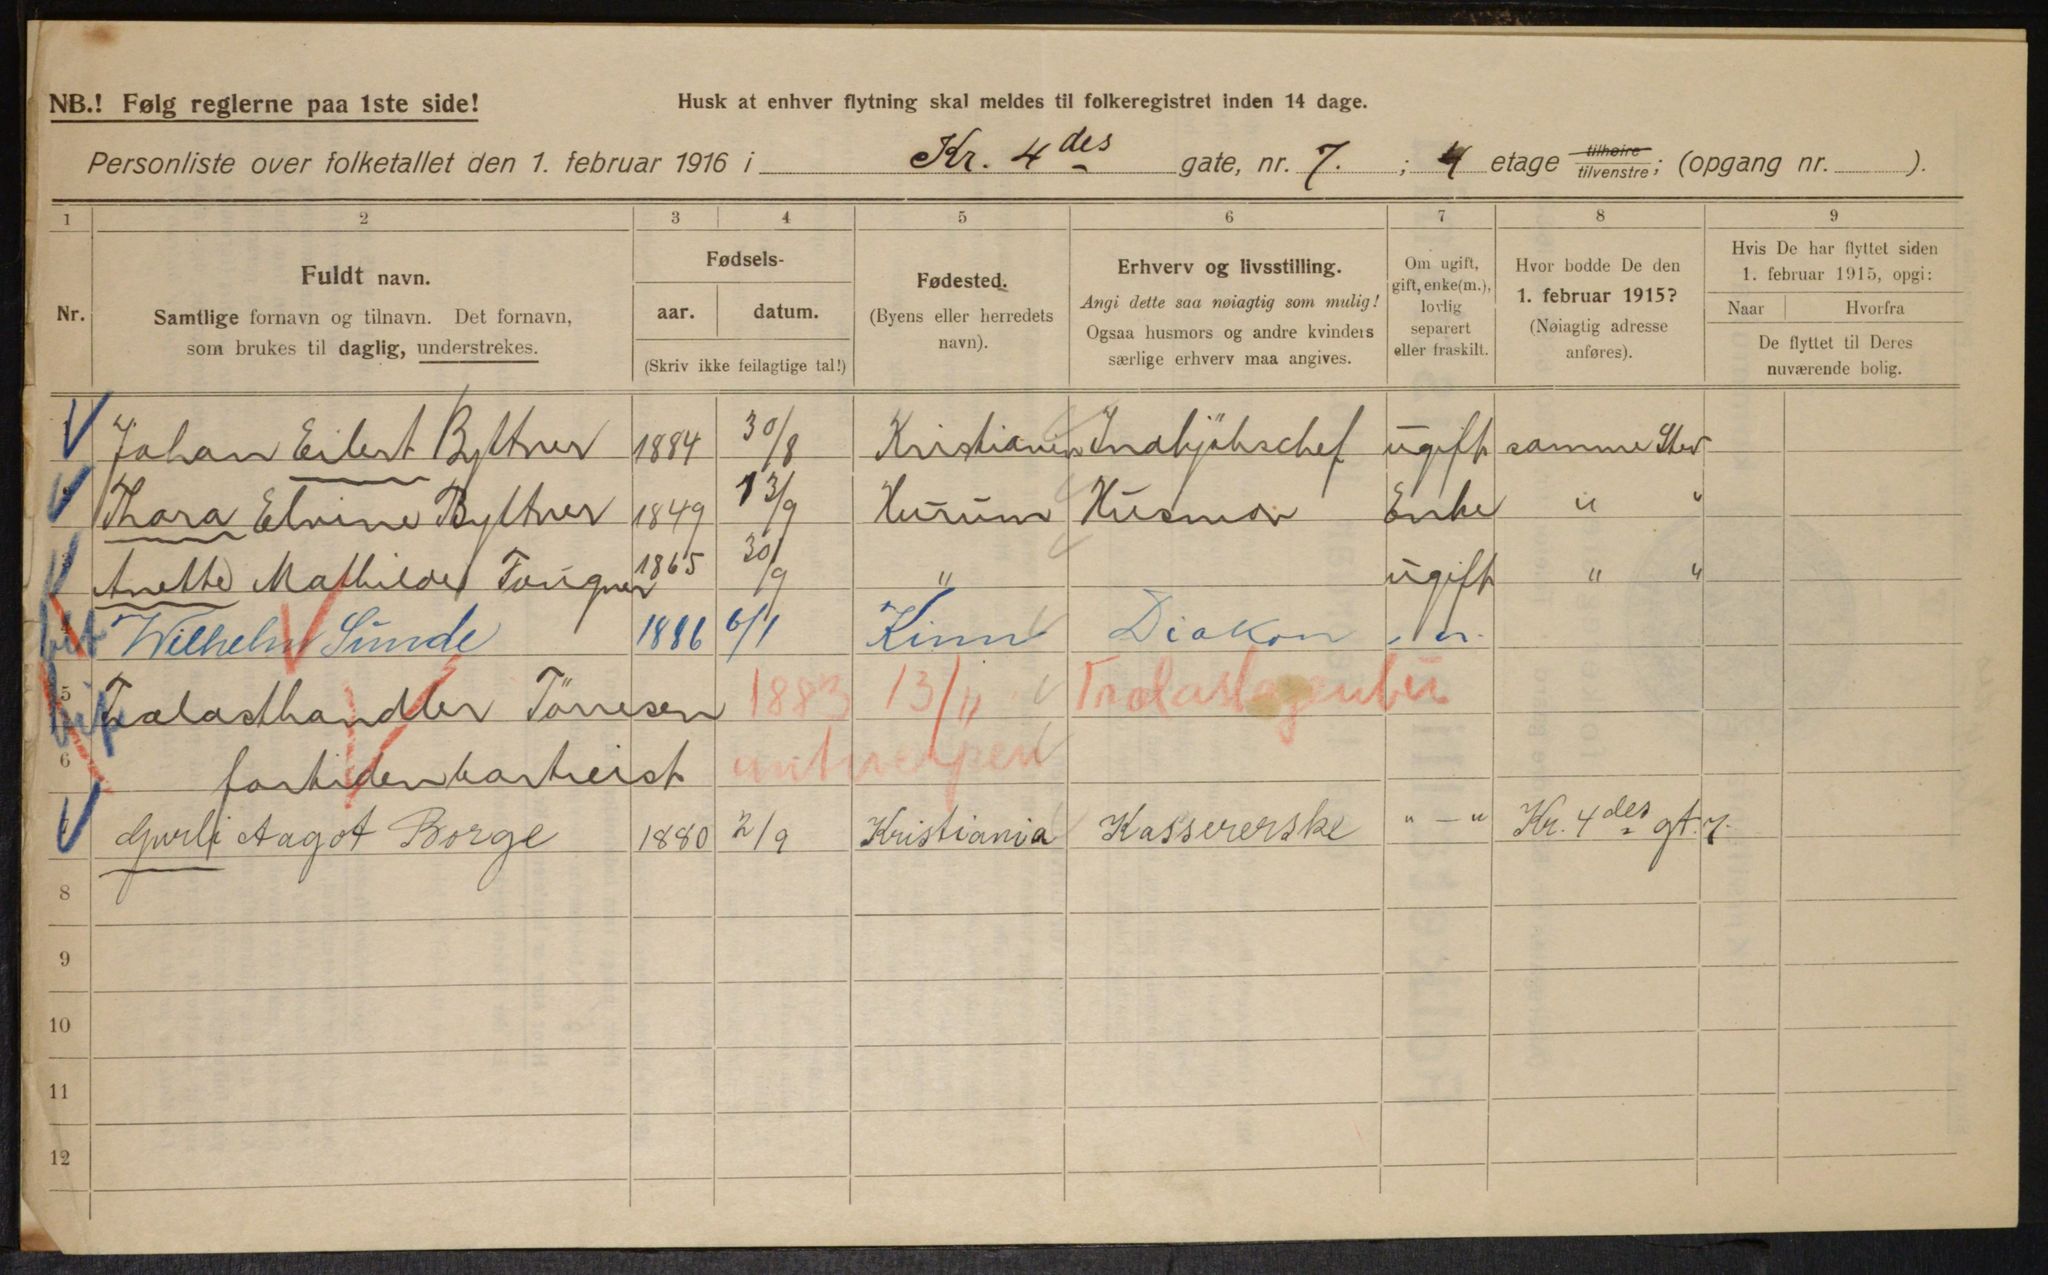 NB.! Følg reglerne paa 1ste side!
Husk at enhver flytning skal meldes til folkeregistret inden 14 dage.
Personliste over folketallet den 1. februar 1916 i Kr. 4des gate, nr. 7. ; 4 etage tilhøire tilvenstre; (opgang nr. ).
1 2 3 4 5 6 7 8 9
Nr.
Fuldt navn.
Samtlige fornavn og tilnavn. Det fornavn,
som brukes til daglig, understrekes.
Fødsels-
aar. datum.
(Skriv ikke feilagtige tal!)
Fødested.
(Byens eller herredets
navn).
Erhverv og livsstilling.
Angi dette saa nøiagtig som mulig!
Ogsaa husmors og andre kvinders
særlige erhverv maa angives.
Om ugift,
gift, enke(m.),
lovlig
separert
eller fraskilt.
Hvor bodde De den
1. februar 1915?
(Nøiagtig adresse
anføres).
Hvis De har flyttet siden
1. februar 1915, opgi:
Naar Hvorfra
De flyttet til Deres
nuværende bolig.
Johan Eilert Byttner 1884 30/8 Kristiania Indkjöbschef ugift samme Sted
Thora Elvine Byttner 1849 13/9 Hurum Husmor Enke " "
Anette Mathilde Fougner 1865 30/9 " ugift " "
Wilhelm Sunde 1886 6/1 Kinn Diakon
5 Trælasthandler Törresen 1883 13/11 Trælastagentur
6 fortiden bortreist antwerpen
Gurli Aagot Borge 1880 2/9 Kristiania Kassererske " — " Kr. 4des gt. 7.
8
9
10
11
12